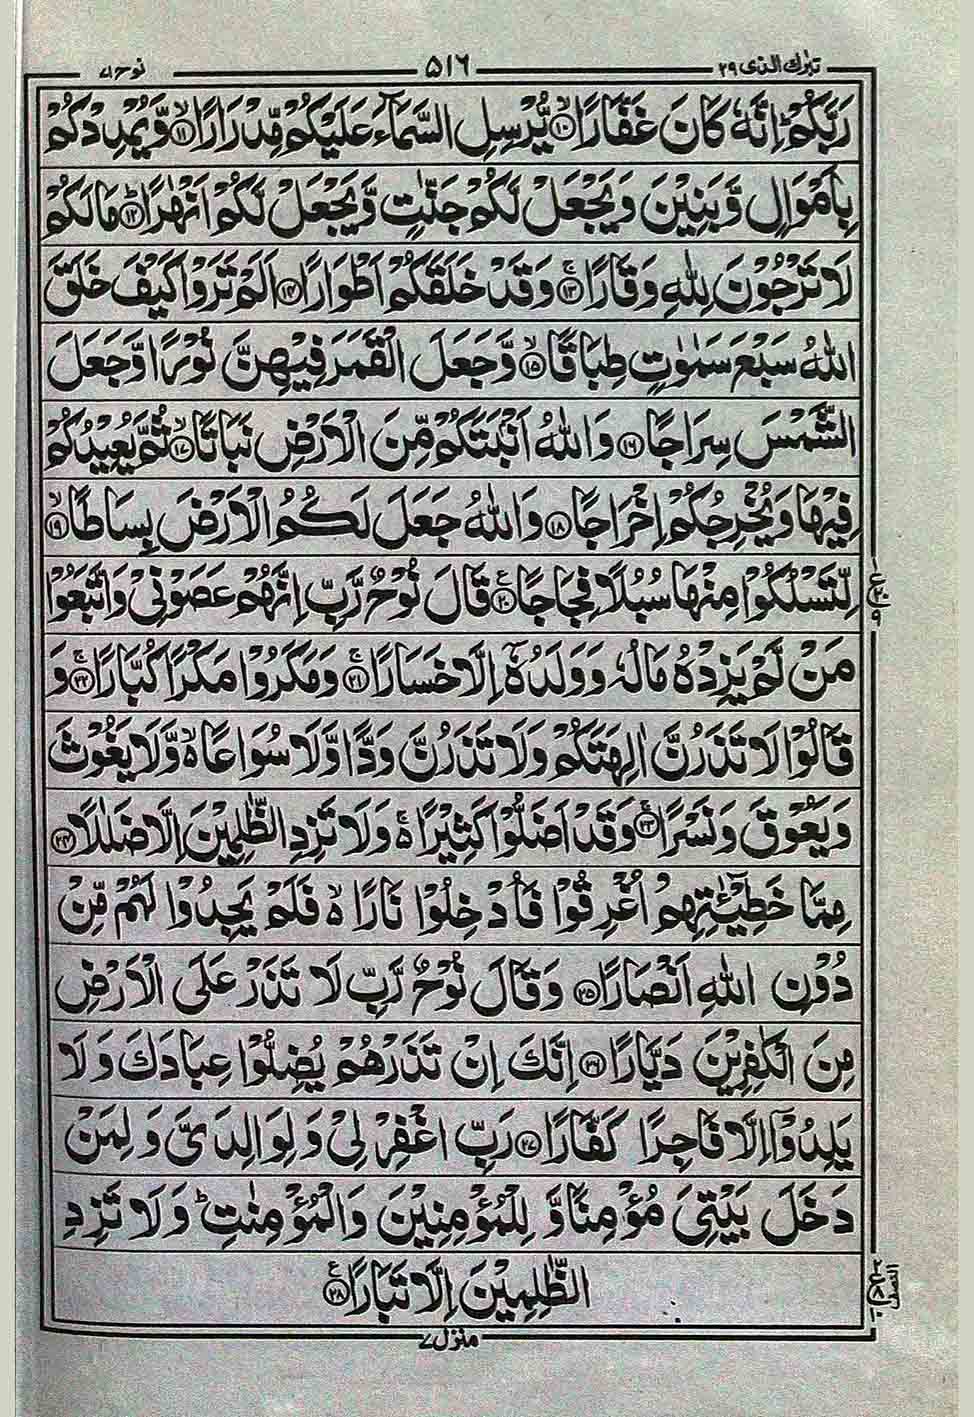 تبٰرك الذی ۲۹ ۵۱۶ نوح ۷۱
رَبَّكُمْ ؕ اِنَّهٗ كَانَ غَفَّارًا ۙ﴿۱۰﴾ يُّرْسِلِ السَّمَآءَ عَلَيْكُمْ مِّدْرَارًا ۙ﴿۱۱﴾ وَّيُمْدِدْكُمْ
بِاَمْوَالٍ وَّبَنِيْنَ وَيَجْعَلْ لَّكُمْ جَنّٰتٍ وَّيَجْعَلْ لَّكُمْ اَنْهٰرًا ؕ﴿۱۲﴾ مَا لَكُمْ
لَا تَرْجُوْنَ لِلّٰهِ وَقَارًا ۚ﴿۱۳﴾ وَقَدْ خَلَقَكُمْ اَطْوَارًا ﴿۱۴﴾ اَلَمْ تَرَوْا كَيْفَ خَلَقَ
اللّٰهُ سَبْعَ سَمٰوٰتٍ طِبَاقًا ۙ﴿۱۵﴾ وَّجَعَلَ الْقَمَرَ فِيْهِنَّ نُوْرًا وَّجَعَلَ
الشَّمْسَ سِرَاجًا ﴿۱۶﴾ وَاللّٰهُ اَنْۢبَتَكُمْ مِّنَ الْاَرْضِ نَبَاتًا ۙ﴿۱۷﴾ ثُمَّ يُعِيْدُكُمْ
فِيْهَا وَيُخْرِجُكُمْ اِخْرَاجًا ﴿۱۸﴾ وَاللّٰهُ جَعَلَ لَكُمُ الْاَرْضَ بِسَاطًا ۙ﴿۱۹﴾
لِّتَسْلُكُوْا مِنْهَا سُبُلًا فِجَاجًا ﴿۲۰﴾ ع قَالَ نُوْحٌ رَّبِّ اِنَّهُمْ عَصَوْنِيْ وَاتَّبَعُوْا
ع ۲۰ ۹
مَنْ لَّمْ يَزِدْهُ مَالُهٗ وَوَلَدُهٗۤ اِلَّا خَسَارًا ۚ﴿۲۱﴾ وَمَكَرُوْا مَكْرًا كُبَّارًا ۚ﴿۲۲﴾ وَ
قَالُوْا لَا تَذَرُنَّ اٰلِهَتَكُمْ وَلَا تَذَرُنَّ وَدًّا وَّلَا سُوَاعًا ۙ۬ وَّلَا يَغُوْثَ
وَيَعُوْقَ وَنَسْرًا ۚ﴿۲۳﴾ وَقَدْ اَضَلُّوْا كَثِيْرًا ۚ۬ وَلَا تَزِدِ الظّٰلِمِيْنَ اِلَّا ضَلٰلًا ﴿۲۴﴾
مِمَّا خَطِيْٓئٰتِهِمْ اُغْرِقُوْا فَاُدْخِلُوْا نَارًا ۙ۬ فَلَمْ يَجِدُوْا لَهُمْ مِّنْ
دُوْنِ اللّٰهِ اَنْصَارًا ﴿۲۵﴾ وَقَالَ نُوْحٌ رَّبِّ لَا تَذَرْ عَلَى الْاَرْضِ
مِنَ الْكٰفِرِيْنَ دَيَّارًا ﴿۲۶﴾ اِنَّكَ اِنْ تَذَرْهُمْ يُضِلُّوْا عِبَادَكَ وَلَا
يَلِدُوْۤا اِلَّا فَاجِرًا كَفَّارًا ﴿۲۷﴾ رَبِّ اغْفِرْ لِيْ وَلِوَالِدَيَّ وَلِمَنْ
دَخَلَ بَيْتِيَ مُؤْمِنًا وَّلِلْمُؤْمِنِيْنَ وَالْمُؤْمِنٰتِ ؕ وَلَا تَزِدِ
الظّٰلِمِيْنَ اِلَّا تَبَارًا ﴿۲۸﴾ ع
منزل ۷